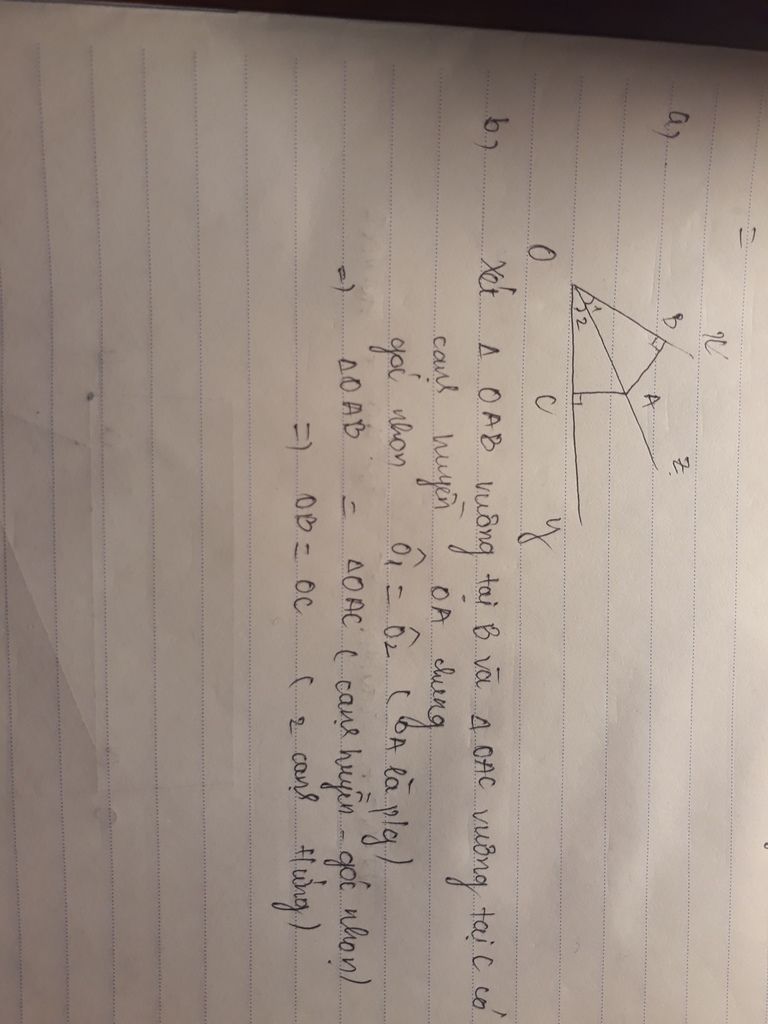 =
a,
x
B
A
z
1
2
O
C
y
b, Xét Δ OAB vuông tại B và Δ OAC vuông tại C có
cạnh huyền OA chung
góc nhọn Ô1 = Ô2 ( OA là p/g )
=) ΔOAB = ΔOAC ( cạnh huyền - góc nhọn )
=) OB = OC ( 2 cạnh t/ứng )